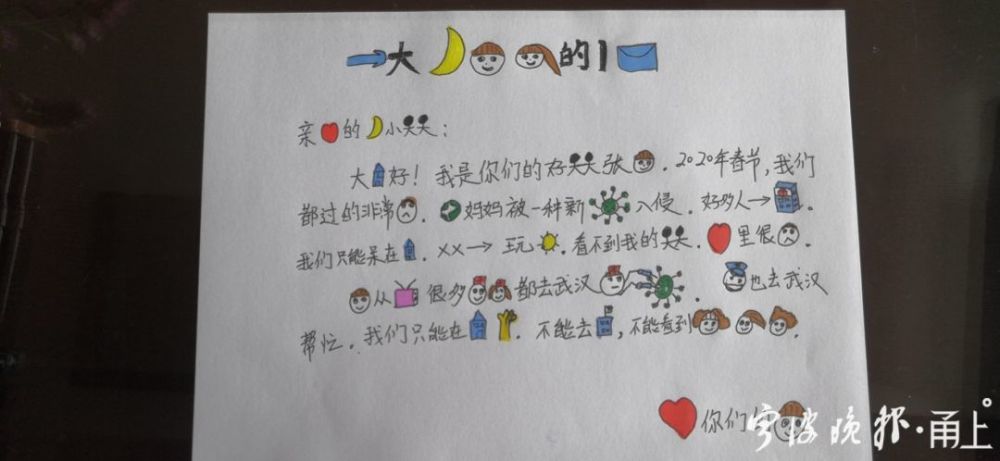 大的1
亲的小天天：
大好！我是你们的好天天张．2020年春节，我们
都过的非常．妈妈被一种新入侵．好多人→．
我们只能呆在．××→玩．看不到我的天天．里很．
从很多都去武汉．也去武汉
帮忙．我们只能在．不能去，不能看到．
你们的
宁波晚报·甬上